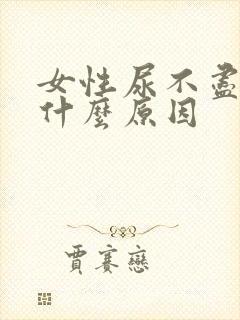 女性尿不盡
什麼原因
賈賽戀